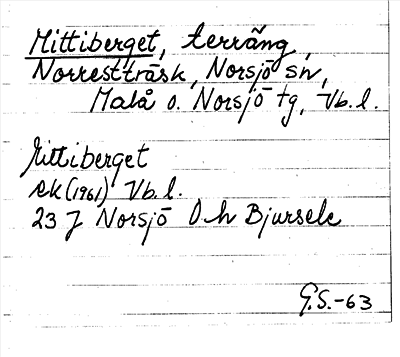 Mittiberget, terräng,
Norrestträsk, Norsjö sn,
Malå o. Norsjö tg, Vb. l.
Mittiberget
ek (1961) Vb. l.
23 J Norsjö 0 h Bjursele
G.S.-63